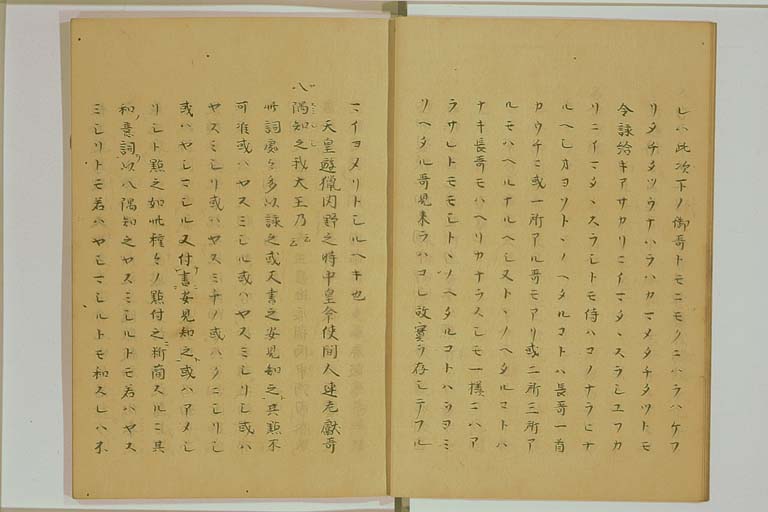 レハ此次下ノ御哥トモニモクニハラハケフ
リタチタツウナハラハカマメタチタツトモ
令詠給キアサカリニイマタヽスラシエフカ
リニイマタヽスラシトモ侍ハコノナラヒナ
ルヘシカヨソトヽノヘタルコトハ長哥一首
カウチニ或一所アル哥モアリ或二所三所ア
ルモハヘルナルヘシ又トヽノヘタルコトハ
ナキ長哥モハヘリカナラスシモ一様ニハア
ラサレトモモシトヽノヘタルコトハヲヨミ
リヘタル哥見来ラハコレ故実ヲ存シテフル
マイヨメリトシルヘキ也
天皇遊獦内野之時中皇命使間人連老献哥
八隅知之我大王乃
此詞處々多以詠之或又書之安見知之其點不
可准或ハヤスミシル或ハヤスミシリシ或ハ
ヤスミシリ或ハヤスミチノ或ハクニシリシ
或ハヤシマシル又付書安見知之或ハアメシ
リシト點之如此種々ノ點付之新蕳スルニ其
和意詞以八隅知之ヤスミシルトモ若ハヤス
ミシリトモ若ハヤシマシルトモ和スレハ不